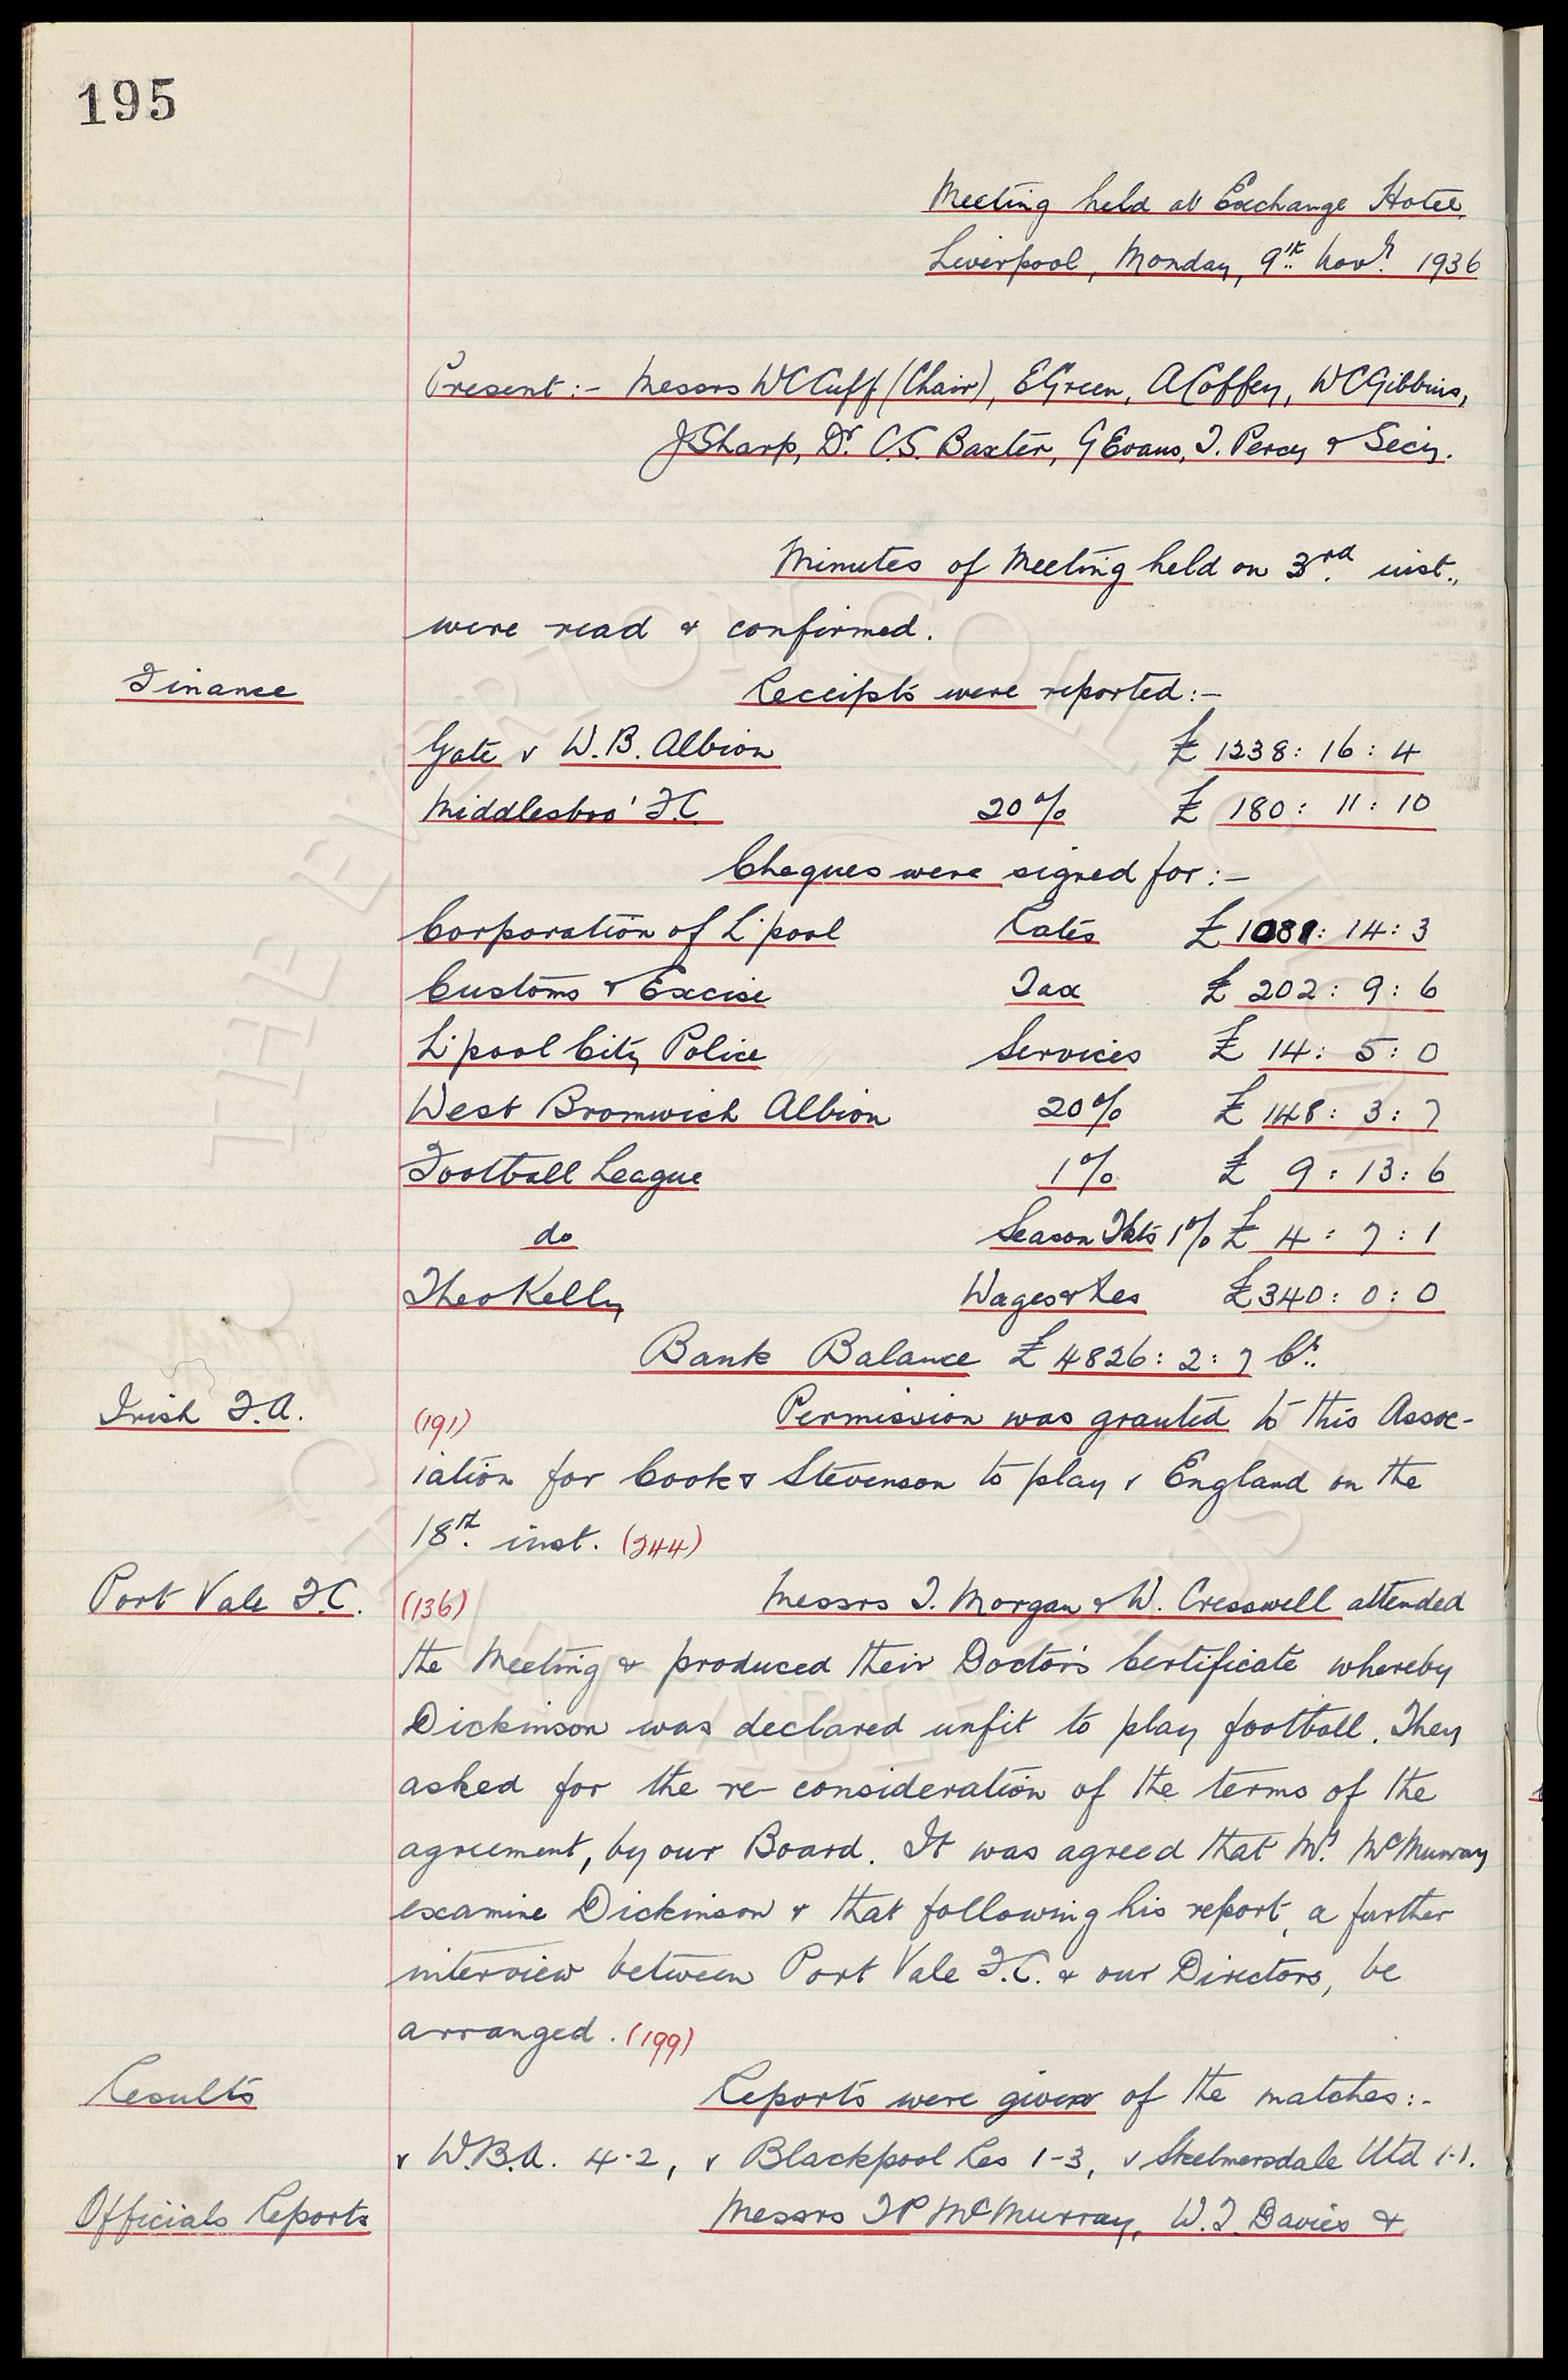 195
Meeting held at Exchange Hotel,
Liverpool, Monday, 9th Novr. 1936
Present:- Messrs WC Cuff (Chair), E Green, A Coffey, WC Gibbins,
J Sharp, Dr. C.S. Baxter, G Evans, T. Percy & Secy.
Minutes of Meeting held on 3rd. inst.,
were read & confirmed.
Finance Receipts were reported:-
Gate v W.B. Albion £ 1238: 16: 4
Middlesbro' F.C. 20% £ 180: 11: 10
Cheques were signed for:-
Corporation of L'pool Rates £ 1081: 14: 3
Customs & Excise Tax £ 202: 9: 6
L'pool City Police Services £ 14: 5: 0
West Bromwich Albion 20% £ 148: 3: 7
Football League 1% £ 9: 13: 6
do Season Tkts 1% £ 4: 7: 1
Theo Kelly Wages & Res £ 340: 0: 0
Bank Balance £ 4826: 2: 7 Cr.
Irish F.A. (191) Permission was granted to this Assoc-
iation for Cook & Stevenson to play v England on the
18th. inst. (244)
Port Vale F.C. (136) Messrs T. Morgan & W. Cresswell attended
the Meeting & produced their Doctor's Certificate whereby
Dickinson was declared unfit to play football. They
asked for the re-consideration of the terms of the
agreement, by our Board. It was agreed that Mr. McMurray
examine Dickinson & that following his report, a further
interview between Port Vale F.C. & our Directors, be
arranged. (199)
Results Reports were given of the matches:-
v W.B.A. 4-2, v Blackpool Res 1-3, v Skelmersdale Utd 1-1.
Officials Reports Messrs TP McMurray, W.J. Davies &